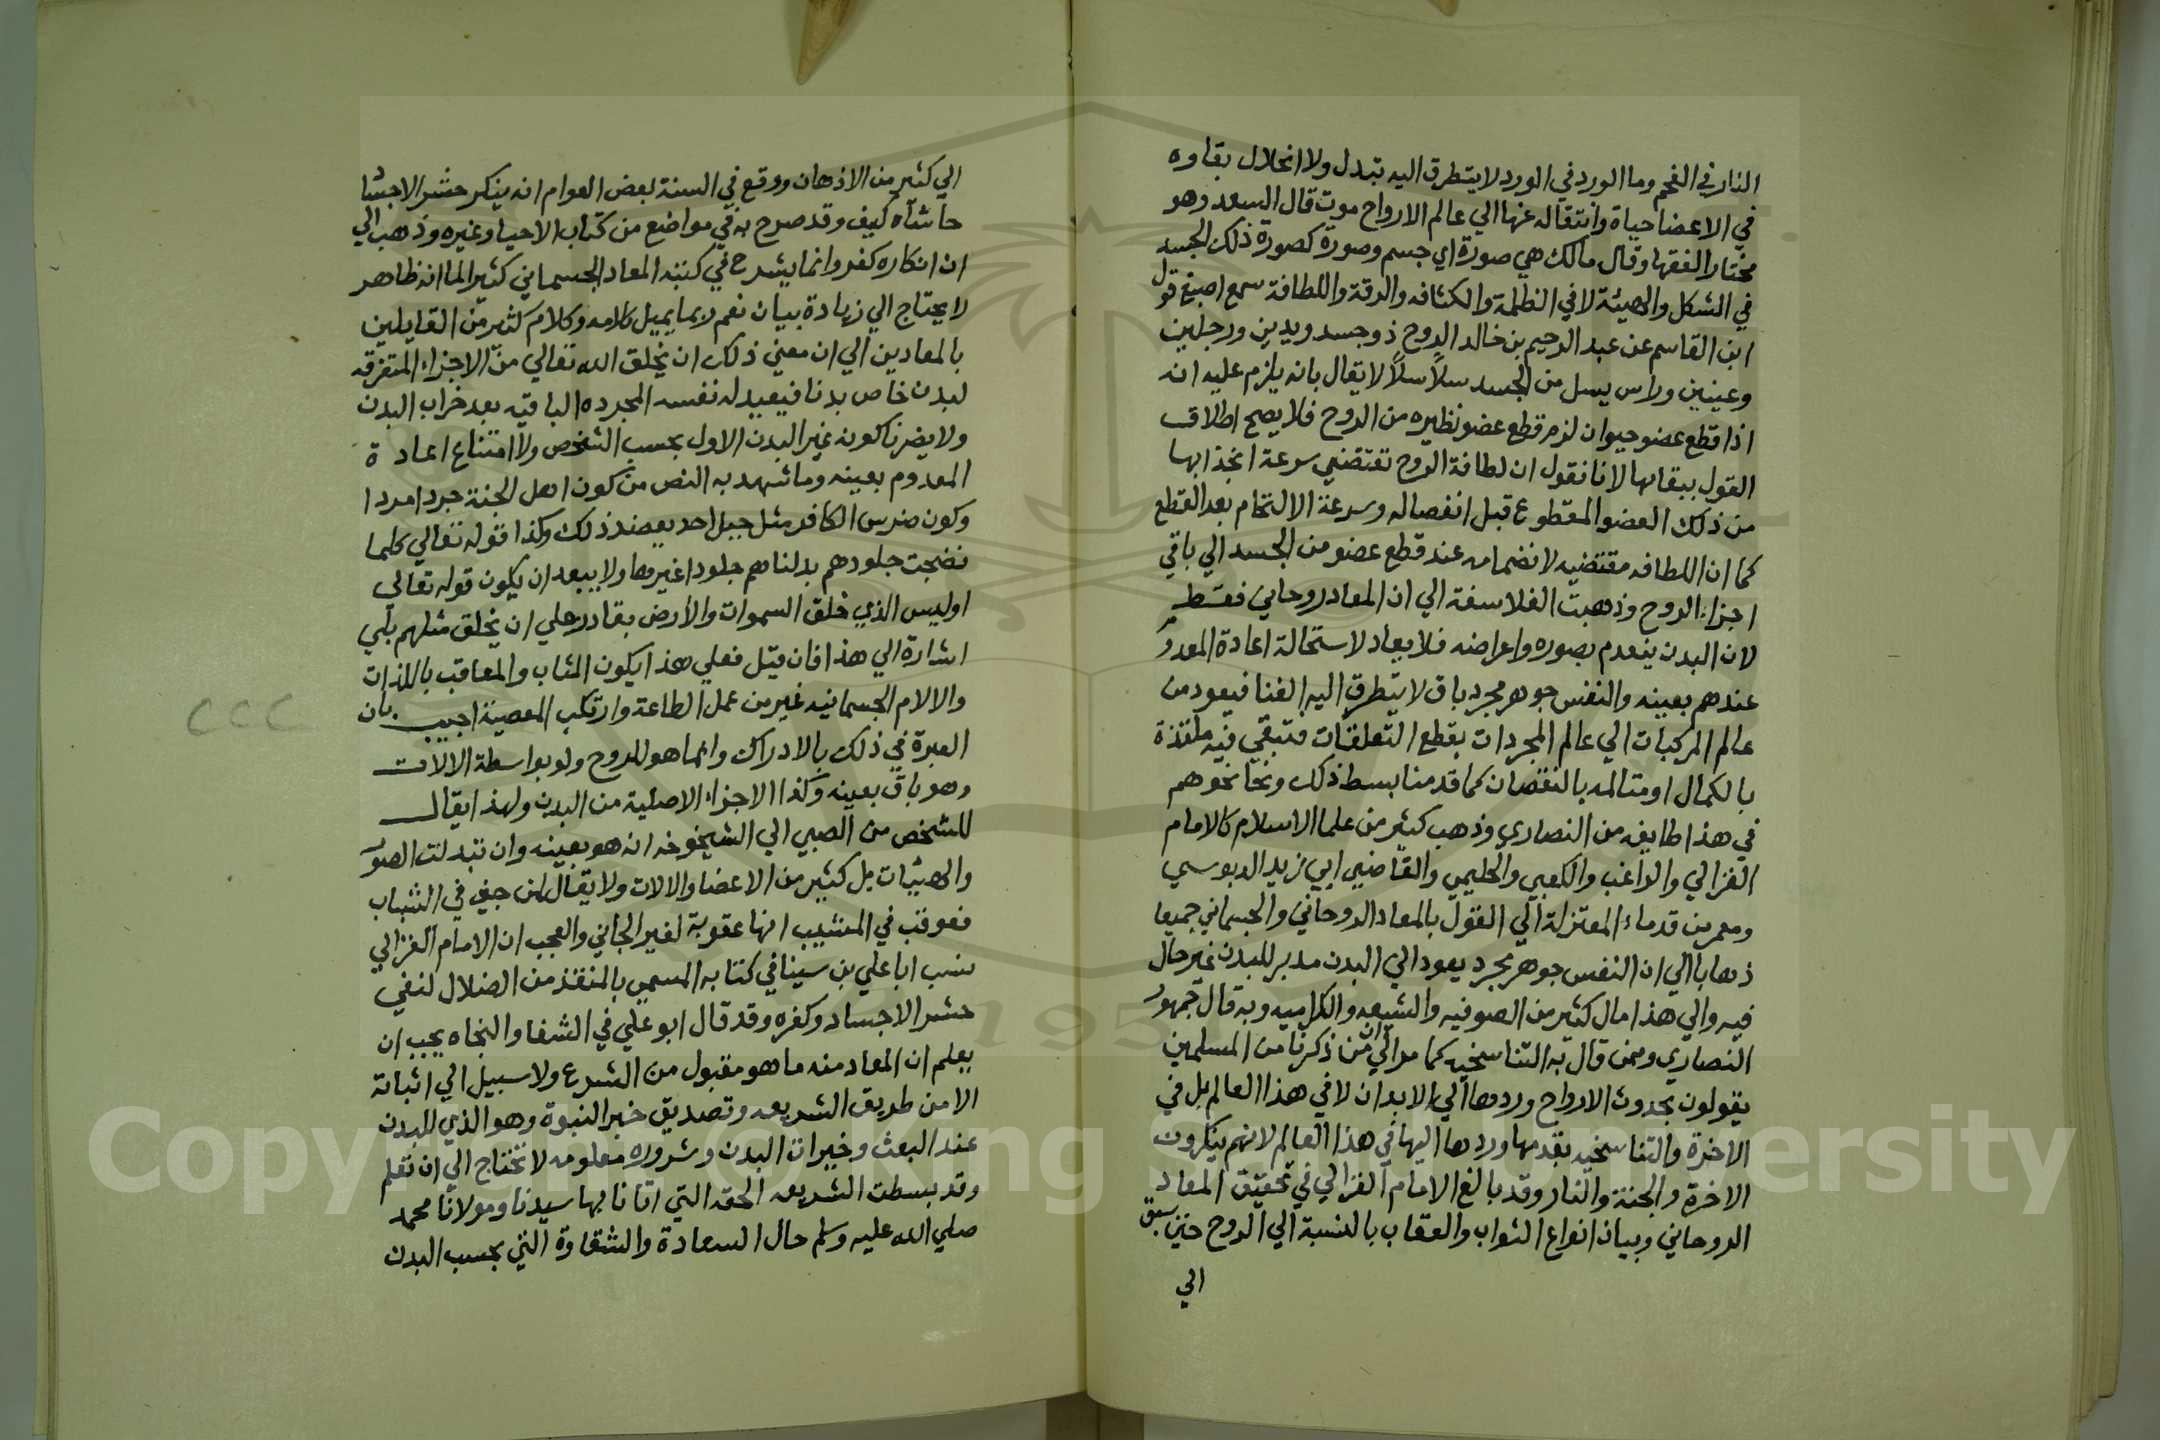 النار في الفحم وما الورد في الورد لا يتطرق اليه تبدل ولا انحلال بقاوه
في الاعضا حياة وانتقاله عنها الي عالم الارواح موت قال السعد وهو
مختار الفقها وقال مالك هي صورة اي جسم وصورة كصورة ذلك الجسد
في الشكل والهيئة لا في الظلمة والكثافه والرقة واللطافة سمع اصبغ قول
ابن القاسم عن عبد الرحيم بن خالد الروح ذو جسد ويدين ورجلين
وعينين وراس يسل من الجسد سلاً سلاً لا يقال بانه يلزم عليه انه
اذا قطع عضو حيوان لزم قطع عضو نظيره من الروح فلا يصح اطلاق
القول ببقائها لانا نقول ان لطافة الروح تقتضي سرعة انجذابها
من ذلك العضو المقطوع قبل انفصاله وسرعة الالتحام بعد القطع
كما ان اللطافه مقتضيه لانضمامه عند قطع عضو من الجسد الي باقي
اجزاء الروح وذهبت الفلاسفة الي ان المعاد روحاني فقط
لان البدن ينعدم بصوره واعراضه فلا يعاد لاستحالة اعادة المعدوم
عندهم بعينه والنفس جوهر مجرد باق لا يتطرق اليه الفنا فيعود من
عالم المركبات الي عالم المجردات بقطع التعلقات فتبقي فيه ملتذة
بالكمال او متالمه بالنقصان كما قدمنا بسط ذلك ونحا نحوهم
في هذا طايفه من النصاري وذهب كثير من علما الاسلام كالامام
الغزالي والراغب والكعبي والحليمي والقاضي ابي زيد الدبوسي
ومعمر من قدماء المعتزلة الي القول بالمعاد الروحاني والجسماني جميعا
ذهابا الي ان النفس جوهر مجرد يعود الي البدن مدبر للبدن غير حال
فيه والي هذا مال كثير من الصوفيه والشيعه والكراميه وبه قال جمهور
النصاري وممن قال به التناسخيه كما مر الي ان من ذكرنا من المسلمين
يقولون بحدوث الارواح وردها الي الابدان لا في هذا العالم بل في
الاخرة والتناسخيه بقدمها وردها اليها في هذا العالم لانهم ينكرون
الاخرة والجنة والنار وقد بالغ الامام الغزالي في تحقيق المعاد
الروحاني وبيان انواع الثواب والعقاب بالنسبة الي الروح حتي سبق
الي
الي كثير من الاذهان ووقع في السنة بعض العوام انه ينكر حشر الاجساد
حاشاه كيف وقد صرح به في مواضع من كتاب الاحيا وغيره وذهب الي
ان انكاره كفر وانما يشرح في كتبه المعاد الجسماني كثيرا لما انه ظاهر
لا يحتاج الي زيادة بيان نعم ربما يميل كلامه وكلام كثير من القايلين
بالمعادين الي ان معني ذلك ان يخلق الله تعالي من الاجزاء المتفرقه
لبدن خاص بدنا فيعيد له نفسه المجرده الباقيه بعد خراب البدن
ولا يضرنا كونه غير البدن الاول بحسب الشخص ولا امتناع اعادة
المعدوم بعينه وما شهد به النص من كون اهل الجنة جردا مردا
وكون ضرس الكافر مثل جبل احد يعضد ذلك وكذا قوله تعالي كلما
نضجت جلودهم بدلناهم جلودا غيرها ولا يبعد ان يكون قوله تعالى
اوليس الذي خلق السموات والأرض بقادر علي ان يخلق مثلهم بلي
اشارة الي هذا فان قيل فعلي هذا يكون المثاب والمعاقب باللذات
والالام الجسمانيه غير من عمل الطاعة وارتكب المعصية اجيب بان
العبرة في ذلك بالادراك وانما هو للروح ولو بواسطة الالات
وهو باق بعينه وكذا الاجزاء الاصلية من البدن ولهذا يقال
للشخص من الصبي الي الشيخوخه انه هو بعينه وان تبدلت الصور
والهيئات بل كثير من الاعضا والالات ولا يقال لمن جني في الشباب
فعوقب في المشيب انها عقوبة لغير الجاني والعجب ان الامام الغزالي
نسب ابا علي بن سينا في كتابه المسمي بالمنقذ من الضلال لنفي
حشر الاجساد وكفره وقد قال ابو علي في الشفا والنجاه يجب ان
يعلم ان المعاد منه ما هو مقبول من الشرع ولا سبيل الي اثباتة
الا من طريق الشريعه وتصديق خبر النبوة وهو الذي للبدن
عند البعث وخيرات البدن وشروره معلومه لا تحتاج الي ان تعلم
وقد بسطت الشريعه الحقه التي اتانا بها سيدنا ومولانا محمد
صلي الله عليه وسلم حال السعادة والشقاوة التي بحسب البدن
1957
Copyright © King Saud University